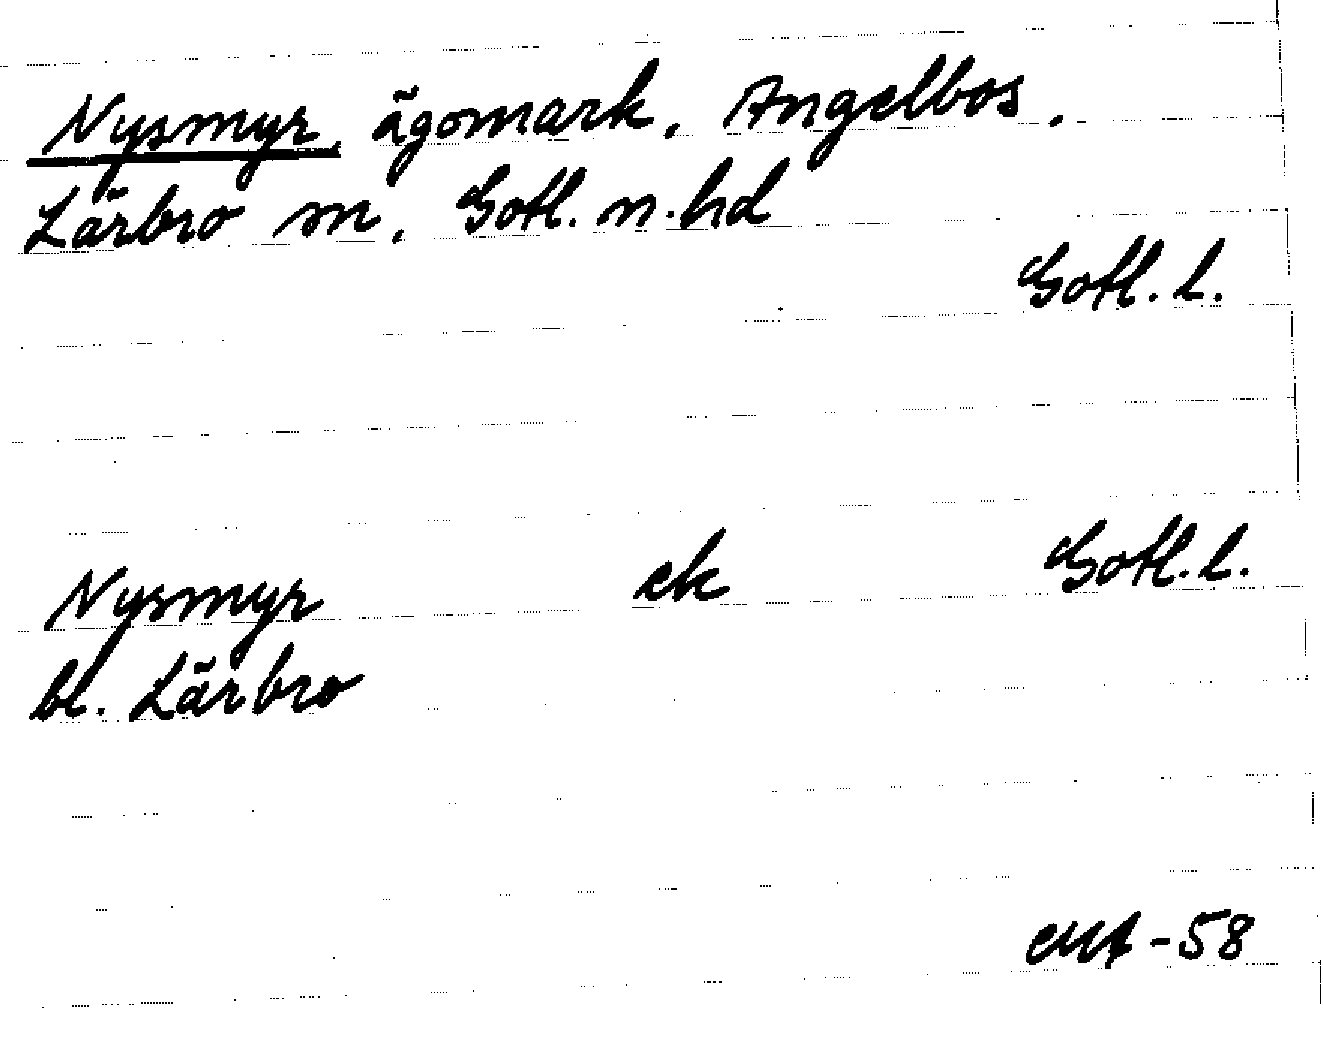 Nysmyr, ägomark, Angelbos,
Lärbro sn, Gotl. n. hd
Gotl. l.
Nysmyr ek Gotl. l.
bl. Lärbro
-58